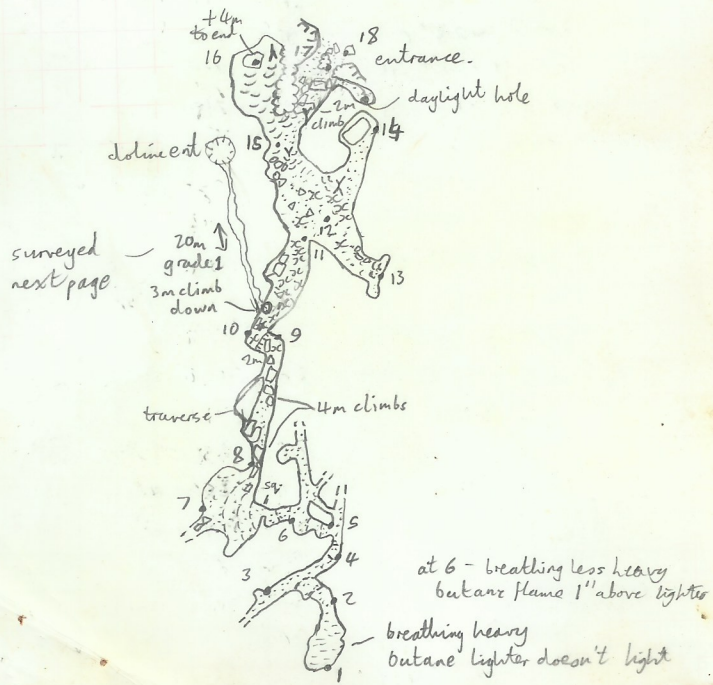 +4m
to end
16
17
18
entrance.
2m
climb
daylight hole
14
15
doline ent
12
20m
grade 1
surveyed
next page
11
13
3m climb
down
10
9
2m
traverse
4m climbs
8
sq.
7
6
5
4
3
2
at 6 - breathing less heavy
butane flame 1" above lighter
breathing heavy
butane lighter doesn't light
1